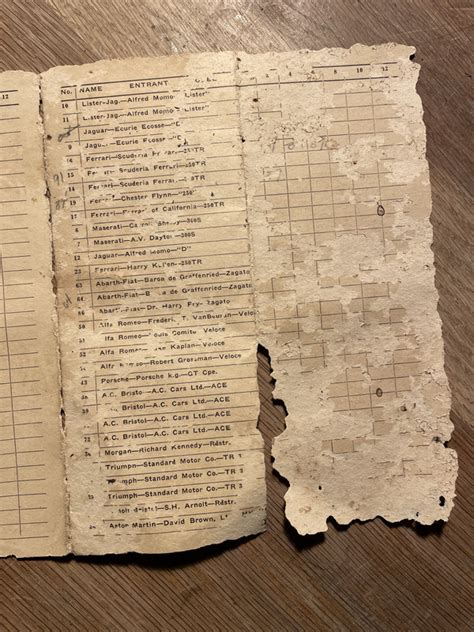 No. NAME ENTRANT
2 4 6 8 10 12
12
10 Lister-Jag.—Alfred Momo—"Lister"
11 Lister-Jag.—Alfred Momo—"Lister"
Jaguar—Ecurie Ecosse—"D"
9 Jaguar—Ecurie Ecosse—"D"
14 Ferrari—Scuderia Ferrari—250TR
15 Ferrari—Scuderia Ferrari—250TR
16 Ferrari—Scuderia Ferrari—250TR
Ferrari—Chester Flynn—"250"
17 Ferrari—Ferrari of California—250TR
6 Maserati—300S
7 Maserati—A.V. Dayton—300S
12 Jaguar—Alfred Momo—"D"
23 Ferrari—Harry
63 Abarth-Fiat—Baron de Graffenried—Zagato
64 Abarth-Fiat—Baron de Graffenried—Zagato
Abarth-Fiat—Dr. Harry Fry—Zagato
50 Alfa Romeo—Frederic T. VanBeuren—Veloce
51 Alfa Romeo—Louis Comito Veloce
52 Alfa Romeo— Kaplan—Veloce
Alfa Romeo—Robert Grossman—Veloce
43 Porsche—Porsche k.g.—GT Cpe.
A.C. Bristol—A.C. Cars Ltd.—ACE
39 A.C. Bristol—A.C. Cars Ltd.—ACE
A.C. Bristol—A.C. Cars Ltd.—ACE
A.C. Bristol—A.C. Cars Ltd.—ACE
Morgan—Richard Kennedy—Rdstr.
Triumph—Standard Motor Co.—TR 3
Triumph—Standard Motor Co.—TR 3
Triumph—Standard Motor Co.—TR 3
S.H. Arnolt—Rdstr.
Aston Martin—David Brown,